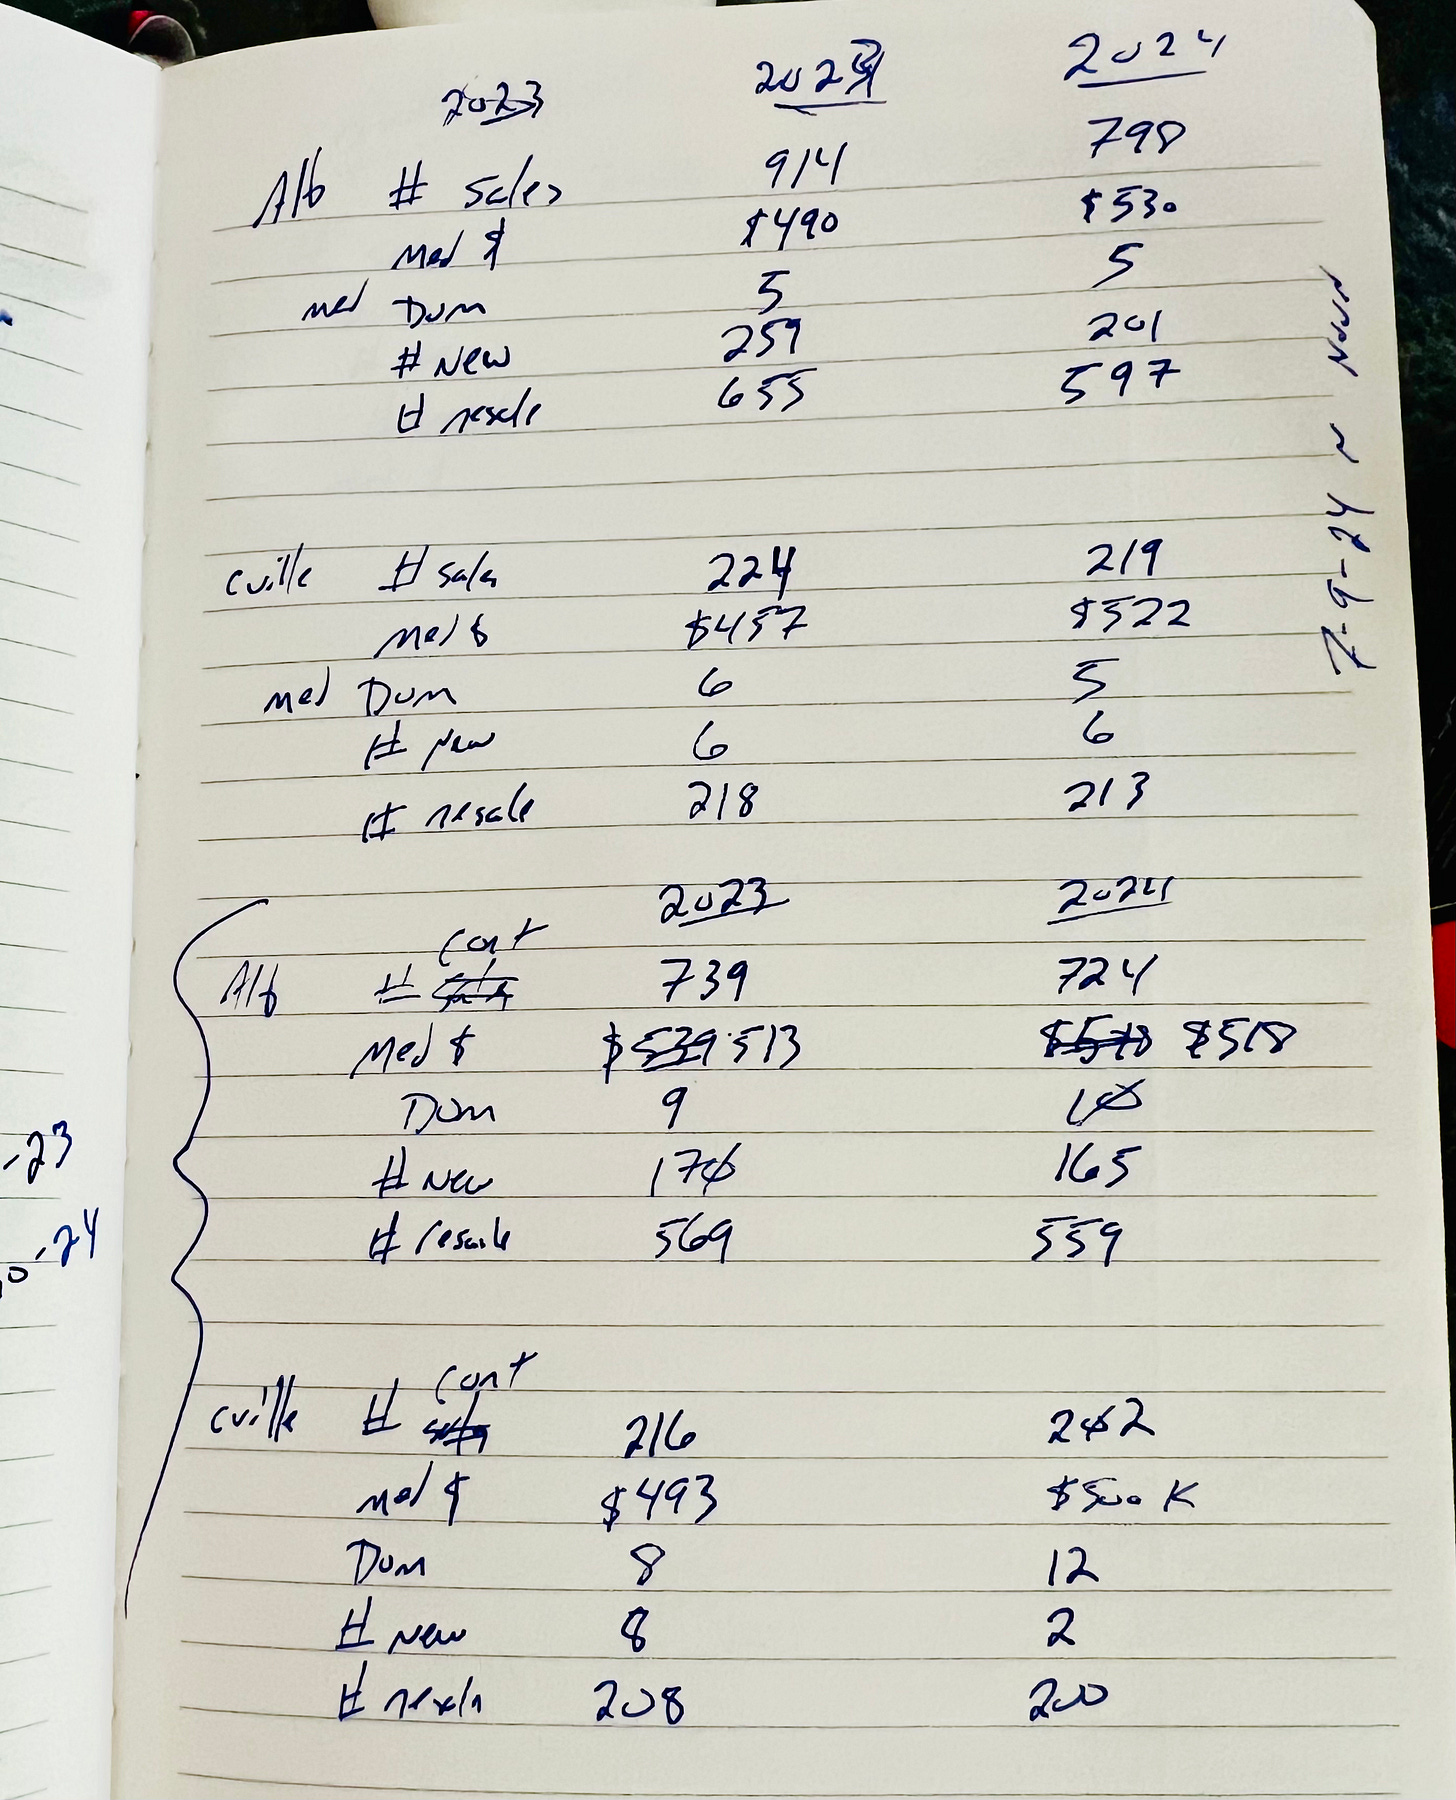 2023 2023 2024
Alb # sales 914 798
Med $ $490 $530
med Dom 5 5
# New 259 201
# resale 655 597
cville # sales 224 219
Med $ $457 $522
med Dom 6 5
# New 6 6
# resale 218 213
2023 2024
cont
Alb # sales 739 724
Med $ $539 513 $518 $518
Dom 9 10
# New 170 165
# resale 569 559
cont
cville # sales 216 202
med $ $493 $500 K
Dom 8 12
# New 8 2
# resale 208 200
7-9-24 ~ Noon
-23
-24